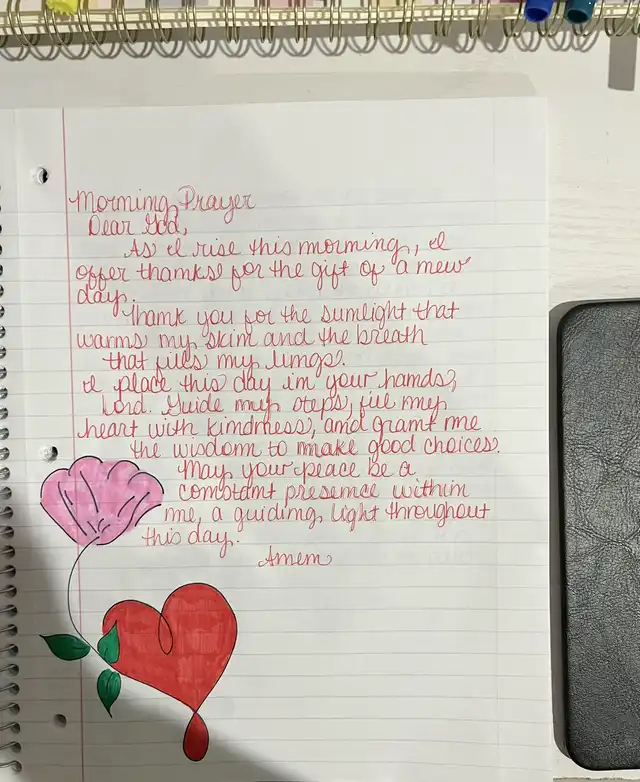 Morning Prayer
Dear God,
As I rise this morning, I
offer thanks for the gift of a new
day.
Thank you for the sunlight that
warms my skin and the breath
that fills my lungs.
I place this day in your hands,
Lord. Guide my steps, fill my
heart with kindness, and grant me
the wisdom to make good choices.
May your peace be a
constant presence within
me, a guiding light throughout
this day.
Amen